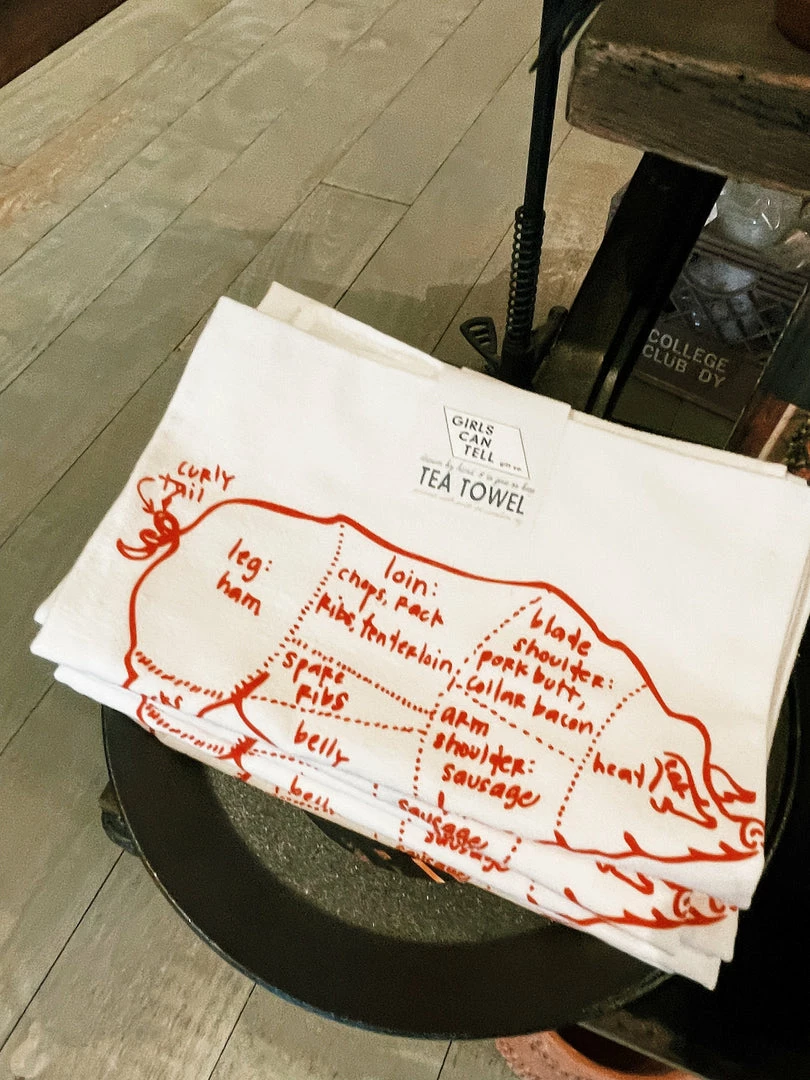 GIRLS
CAN
TELL
TEA TOWEL
curly
tail
leg:
ham
loin:
chops, rack
ribs, tenterloin,
spare
ribs
belly
blade
shoulder:
pork butt,
collar bacon
arm
shoulder:
sausage
head
ear
belly
sausage
sausage
COLLEGE
CLUB DY